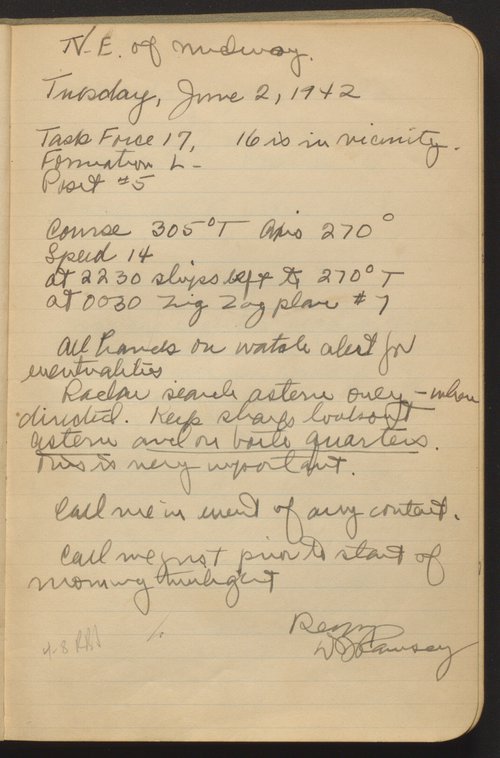 N.E. of Midway.
Tuesday, June 2, 1942
Task Force 17, 16 is in vicinity.
Formation L -
Posit #5
Course 305°T Axis 270°
Speed 14
at 2230 ships left to 270°T
at 0030 Zig Zag plan #7
All hands on watch alert for
eventualities
Radar search astern only - when
directed. Keep sharp lookout
astern and on both quarters.
This is very important.
Call me in event of any contact.
Call me just prior to start of
morning twilight
Ramsey